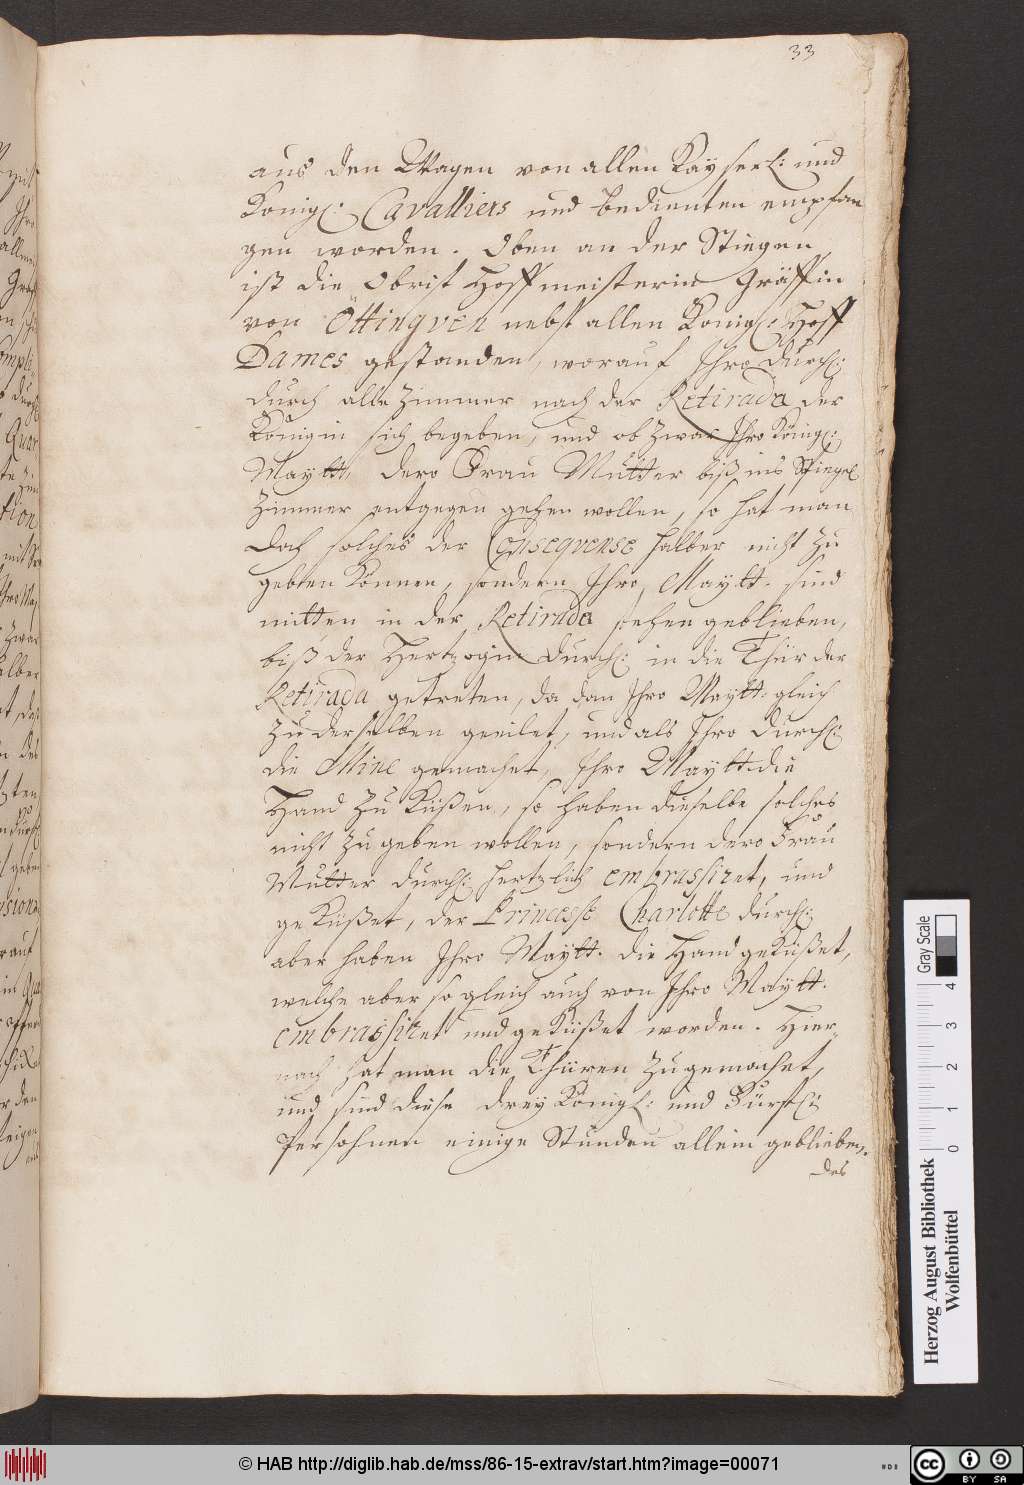 33
aus den Wagen von allen Kayserl: und
Königl: Cavalliers und bedienten empfan
gen worden. Oben an der Stiegen
ist die Obrist Hoffmeisterin Gräffin
von Öttingven nebst allen Königl: Hoff
Dames gestanden, worauf Ihro Durchl:
durch alle Zimmer nach der Retirada der
Königin sich begeben, und ob zwar Ihro Königl:
Maytt. dero Frau Mutter biß ins Spiegel
Zimmer entgegen gehen wollen, so hat man
doch solches der Conseqvense halber nicht zu
geben können, sondern Ihro Maytt. sind
mitten in der Retirada stehen geblieben,
biß der Hertzogin Durchl: in die Thür der
Retirada getreten, da dan Ihro Maytt. gleich
zu derselben geeilet, und als Ihro Durchl:
die Mine gemachet, Ihro Maytt. die
Hand zu küßen, so haben dieselbe solches
nicht zugeben wollen, sondern dero Frau
Mutter Durchl: hertzlich embrassiret, und
geküßet, der Princesse Charlotte Durchl:
aber haben Ihro Maytt. die Hand geküßet,
welche aber so gleich auch von Ihro Maytt.
embrassiret und geküßet worden. Hier-
nach hat man die Thüren zugemachet,
und sind diese drey Königl: und Fürstl:
Persohnen einige Stunden allein geblieben.
des
Herzog August Bibliothek
Wolfenbüttel
Gray Scale
0 1 2 3 4
© HAB http://diglib.hab.de/mss/86-15-extrav/start.htm?image=00071
cc BY SA